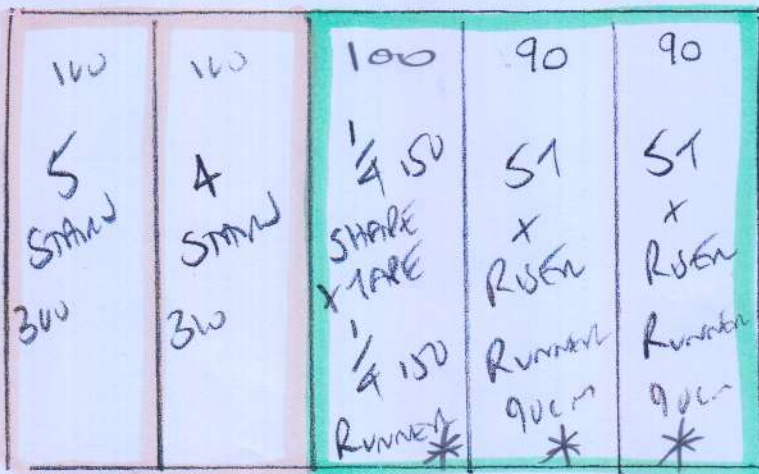 100
5
STAND
300
100
4
STAND
300
100
1/4 150
SHAPE
X TAPE
1/4 150
RUNNER *
90
ST
X
RISER
RUNNER
90CM
*
90
ST
X
RISER
RUNNER
90CM
*